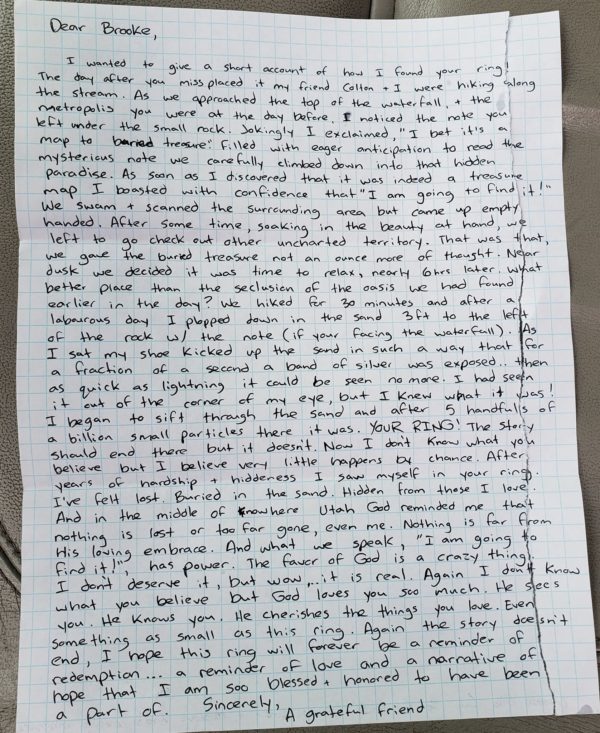 Dear Brooke,
I wanted to give a short account of how I found your ring!
The day after you missplaced it my friend Colton + I were hiking along
the stream. As we approached the top of the waterfall, + the
metropolis you were at the day before, I noticed the note you
left under the small rock. Jokingly I exclaimed, "I bet it's a
map to buried treasure". Filled with eager anticipation to read the
mysterious note we carefully climbed down into that hidden
paradise. As soon as I discovered that it was indeed a treasure
map I boasted with confidence that "I am going to find it!"
We swam + scanned the surrounding area but came up empty
handed. After some time, soaking in the beauty at hand, we
left to go check out other uncharted territory. That was that,
we gave the buried treasure not an ounce more of thought. Near
dusk we decided it was time to relax, nearly 6hrs later. What
better place than the seclusion of the oasis we had found
earlier in the day? We hiked for 30 minutes and after a
labourous day I plopped down in the sand 3ft to the left
of the rock w/ the note (if your facing the waterfall). As
I sat my shoe kicked up the sand in such a way that for
a fraction of a second a band of silver was exposed.. then
as quick as lightning it could be seen no more. I had seen
it out of the corner of my eye, but I knew what it was!
I began to sift through the sand and after 5 handfulls of
a billion small particles there it was. YOUR RING! The story
should end there but it doesn't. Now I don't know what you
believe but I believe very little happens by chance. After
years of hardship + hiddeness I saw myself in your ring.
I've felt lost. Buried in the sand. Hidden from those I love.
And in the middle of nowhere Utah God reminded me that
nothing is lost or too far gone, even me. Nothing is far from
His loving embrace. And what we speak, "I am going to
find it!", has power. The favor of God is a crazy thing.
I don't deserve it, but wow,..it is real. Again I don't know
what you believe but God loves you soo much. He sees
you. He knows you. He cherishes the things you love. Even
something as small as this ring. Again the story doesn't
end, I hope this ring will forever be a reminder of
redemption... a reminder of love and a narrative of
hope that I am soo blessed + honored to have been
a part of. Sincerely,
A grateful friend